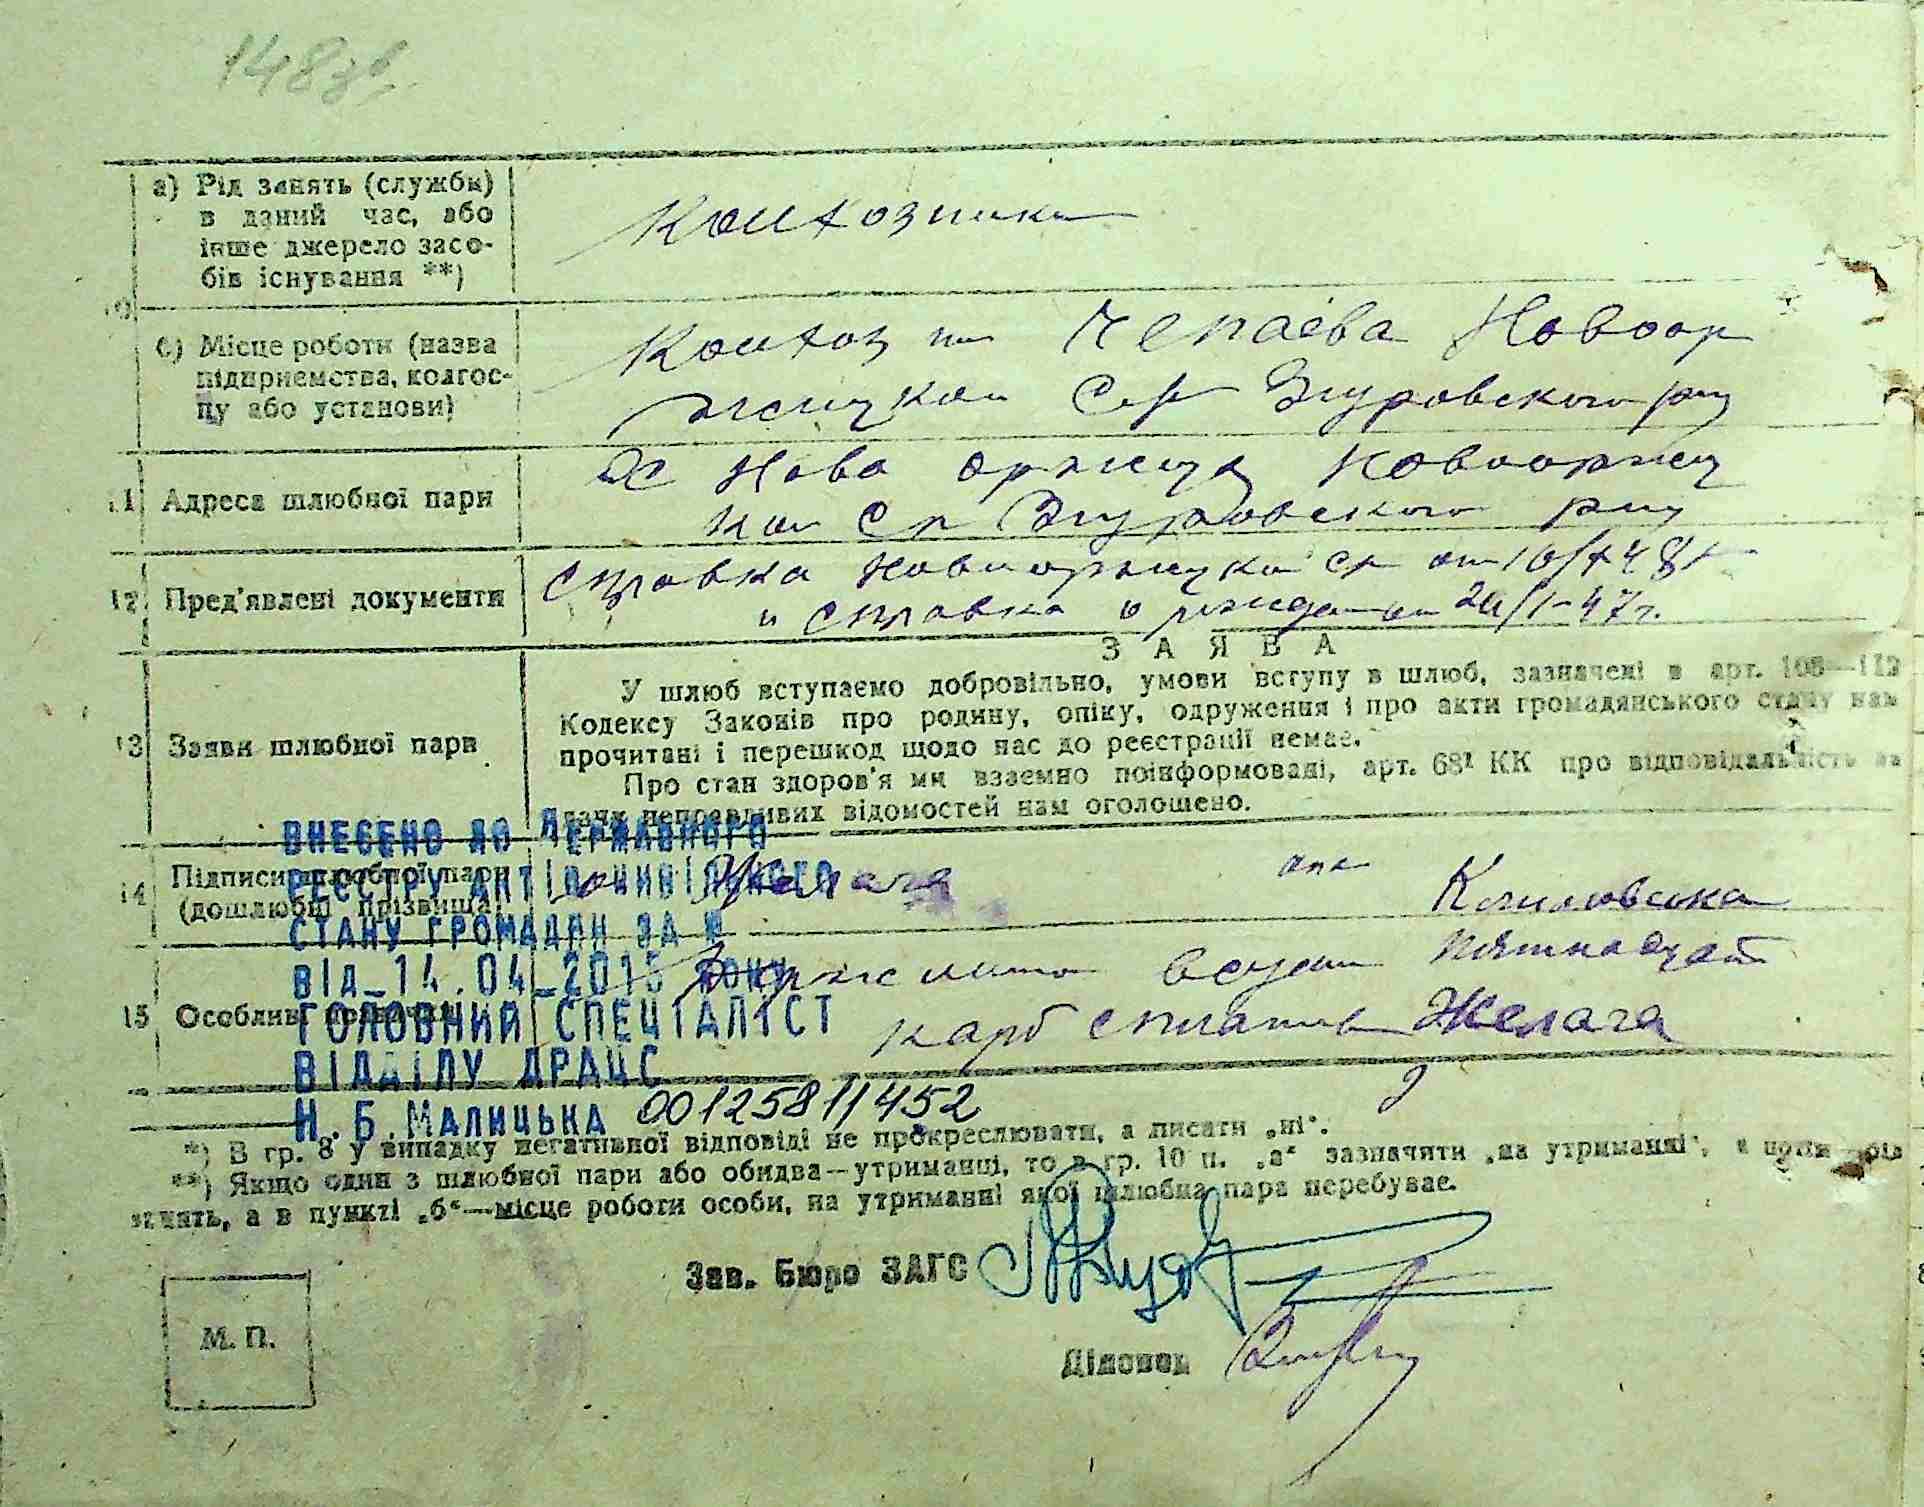 148зв
а) Рід занять (служби)
в даний час, або
інше джерело засо-
бів існування **)
Колхозники
10
б) Місце роботи (назва
підприємства, колгос-
пу або установи)
Колхоз им Чепаєва Новоор
жицкой Ср Згуровского р-ну
11 Адреса шлюбної пари
с Нова Оржица Новооржиц
кой Ср Згуровского р-ну
12 Пред'явлені документи
Справка Новооржицкой Ср от
и справка о от 20/I-47 г.
13 Заяви шлюбної пари
ЗАЯВА
У шлюб вступаємо добровільно, умови вступу в шлюб, зазначені в арт. 108—112
Кодексу Законів про родину, опіку, одруження і про акти громадянського стану нам
прочитані і перешкод щодо нас до реєстрації немає.
Про стан здоров'я ми взаємно поінформовані, арт. 68¹ КК про відповідальність за
дачу неправдивих відомостей нам оголошено.
14 Підписи шлюбної пари
(дошлюбні прізвища)
Желага
Климовська
15 Особливі позначки
пятнадцат
карб сплатив Желага
ВНЕСЕНО ДО ДЕРЖАВНОГО
РЕЄСТРУ АКТІВ ЦИВІЛЬНОГО
СТАНУ ГРОМАДЯН ЗА №
від 14.04.2015 року
ГОЛОВНИЙ СПЕЦІАЛІСТ
ВІДДІЛУ ДРАЦС
Н.Б.МАЛИЦЬКА 00125811452
*) В гр. 8 у випадку негативної відповіді не прокреслювати, а писати „ні".
**) Якщо один з шлюбної пари або обидва—утриманці, то в гр. 10 п. „а" зазначити „на утриманні", а потім рід
занять, а в пункті „б"—місце роботи особи, на утриманні якої шлюбна пара перебуває.
Зав. Бюро ЗАГС
М. П.
Діловод